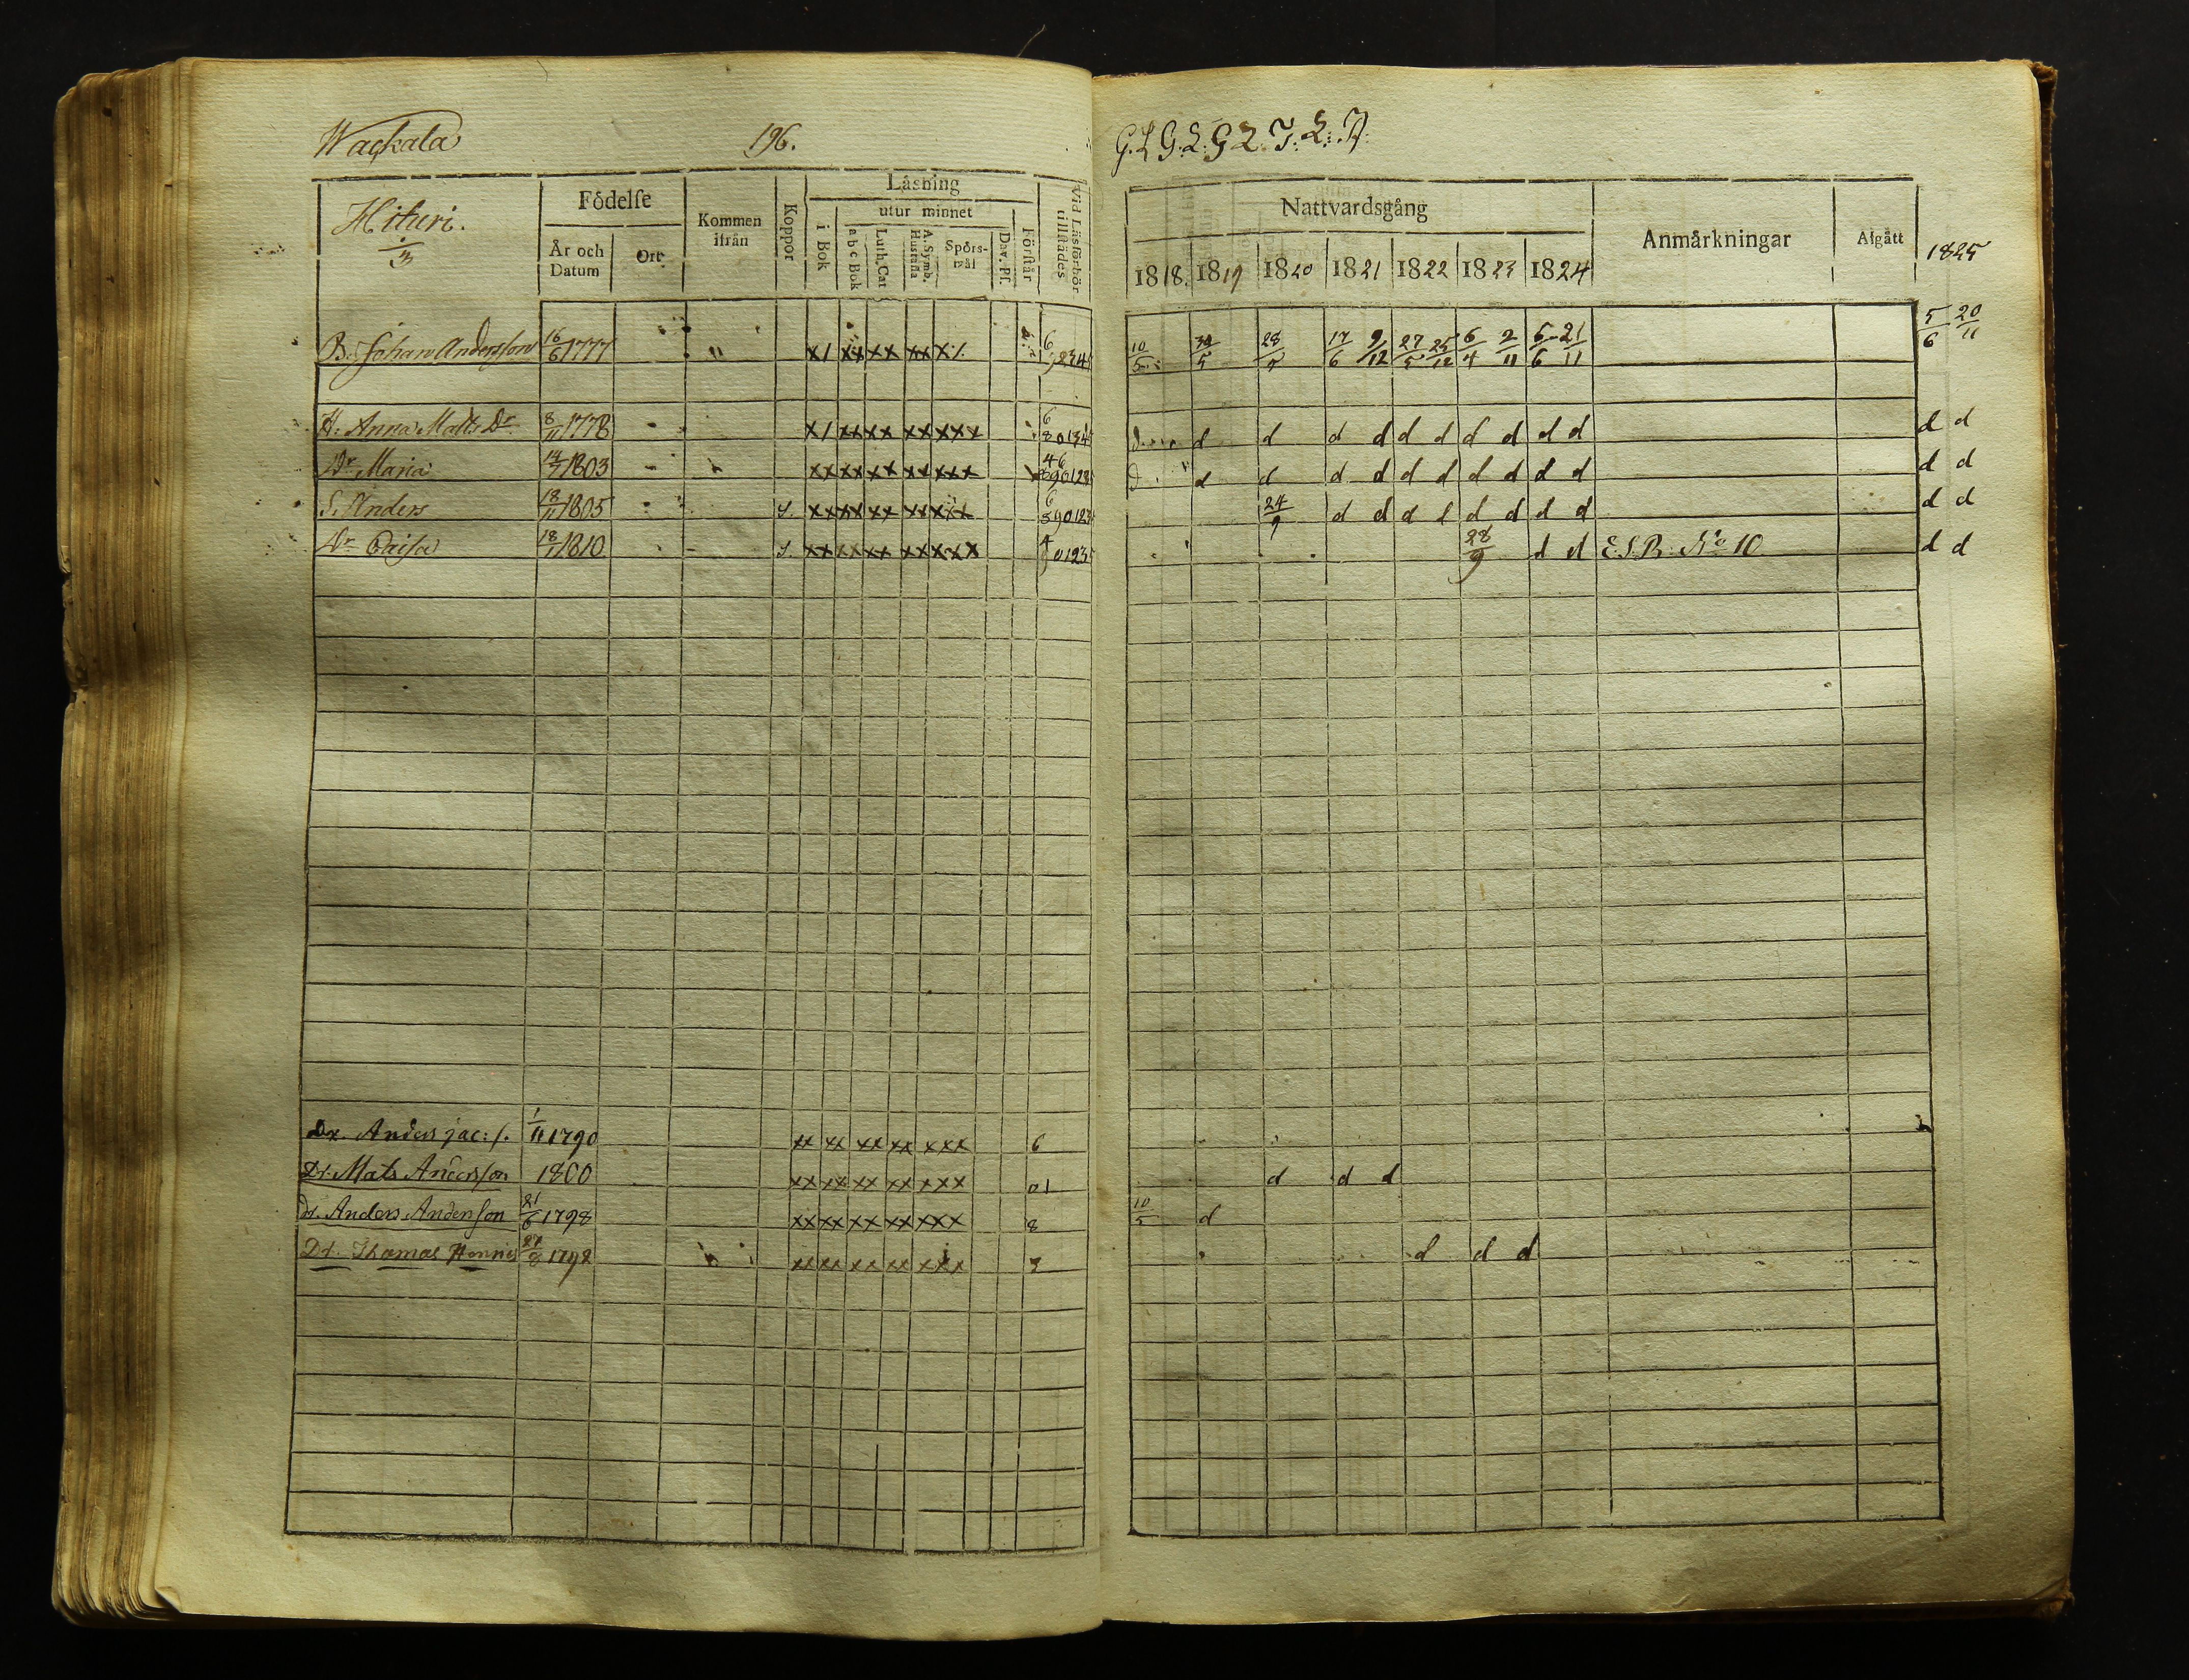 Wackala 196.
Hituri.
Födelse
År och Datum
Ort
Kommen ifrån
Koppor
Läsning
i Bok
utur minnet
a b c Bok
Luth. Cat
A. Symb. Hustafla
Spörsmål
Dav. Ps.
Förstår
Vid Läsförhör tillstädes
B. Johan Andersson 16/6 1777 x/ xx xx xx x/.
H. Anna Matts Dr. 8/11 1778 x/ xx xx xx xxx 6 80134
Dr Maria 1803 xx xx xx xx xxx 46
S. Anders 18/11 1805 xx xx xx xx xxx 6
Dr Caisa 18/1 1810 xx xx xx xx xxx
Dr. Anders Jac:s. 1/11 1790 xx xx xx xx xxx 6
Dr. Mats Andersson 1800 xx xx xx xx xxx 01
dr. Anders Andersson 21/6 1798 xx xx xx xx xxx 8
Dr. Thomas 1798 xx xx xx xx xxx
Nattvardsgång
Anmärkningar
Afgått
1818. 1819 1820 1821 1822 1823 1824 1825
10/5 17/6 9/12 27/5 25/12 6/4 2/11 6/6 21/11 5/6 20/11
d d d d d d d d d d d d d
d d d d d d d d d d d d d
24/9 d d d d d d d d d d
28/9 d d E.S.B. No 10 d d
d d d
10/5 d
d d d